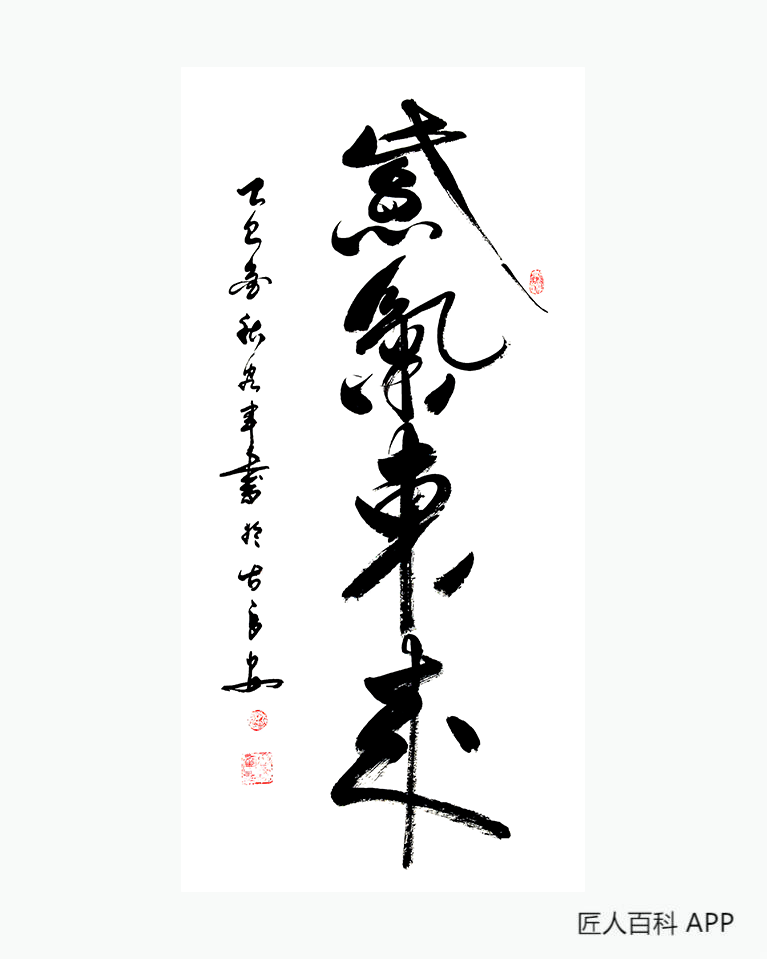 紫氣東來
乙巳歲秋 書於古長安
匠人百科 APP